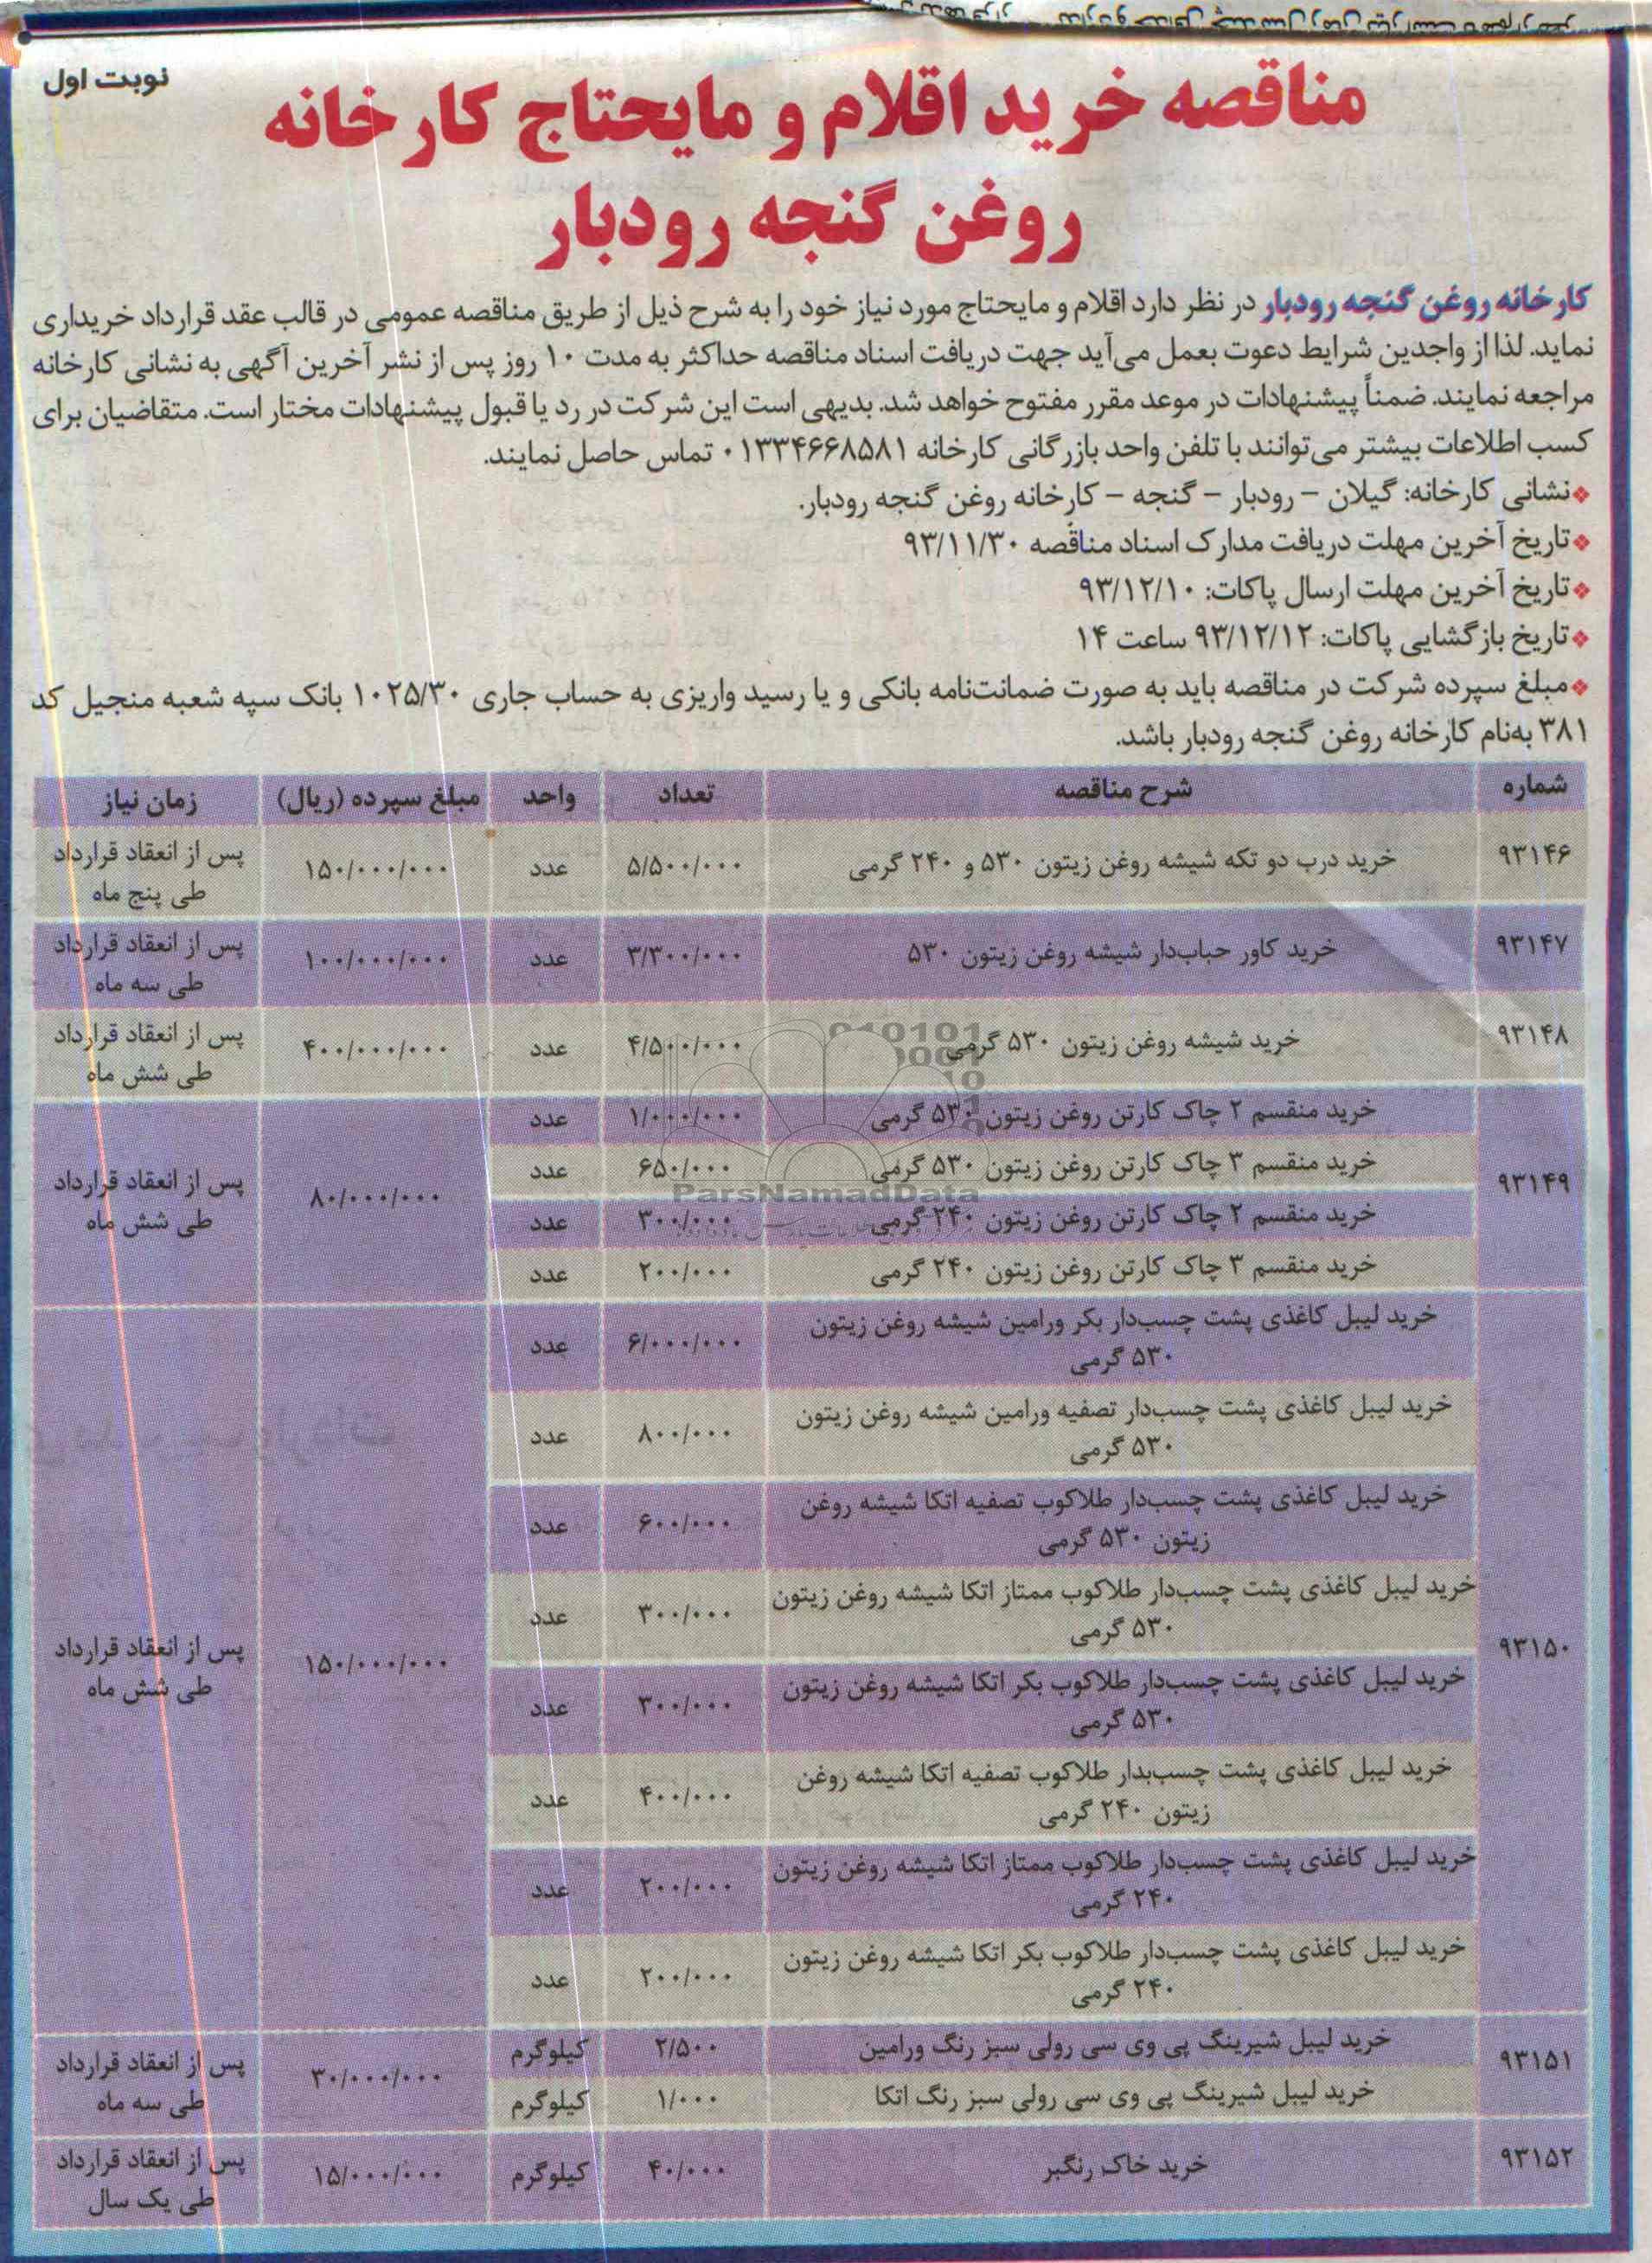 نوبت اول
مناقصه خرید اقلام و مایحتاج کارخانه
روغن گنجه رودبار
کارخانه روغن گنجه رودبار در نظر دارد اقلام و مایحتاج مورد نیاز خود را به شرح ذیل از طریق مناقصه عمومی در قالب عقد قرارداد خریداری
نماید. لذا از واجدین شرایط دعوت بعمل می‌آید جهت دریافت اسناد مناقصه حداکثر به مدت ۱۰ روز پس از نشر آخرین آگهی به نشانی کارخانه
مراجعه نمایند. ضمناً پیشنهادات در موعد مقرر مفتوح خواهد شد. بدیهی است این شرکت در رد یا قبول پیشنهادات مختار است. متقاضیان برای
کسب اطلاعات بیشتر می‌توانند با تلفن واحد بازرگانی کارخانه ۰۱۳۳۴۶۶۸۵۸۱ تماس حاصل نمایند.
نشانی کارخانه: گیلان – رودبار – گنجه – کارخانه روغن گنجه رودبار.
تاریخ آخرین مهلت دریافت مدارک اسناد مناقصه ۹۳/۱۱/۳۰
تاریخ آخرین مهلت ارسال پاکات: ۹۳/۱۲/۱۰
تاریخ بازگشایی پاکات: ۹۳/۱۲/۱۲ ساعت ۱۴
مبلغ سپرده شرکت در مناقصه باید به صورت ضمانت‌نامه بانکی و یا رسید واریزی به حساب جاری ۱۰۲۵/۳۰ بانک سپه شعبه منجیل کد
۳۸۱ به‌نام کارخانه روغن گنجه رودبار باشد.
شماره شرح مناقصه تعداد واحد مبلغ سپرده (ریال) زمان نیاز
۹۳۱۴۶ خرید درب دو تکه شیشه روغن زیتون ۵۳۰ و ۲۴۰ گرمی ۵/۵۰۰/۰۰۰ عدد ۱۵۰/۰۰۰/۰۰۰ پس از انعقاد قرارداد
طی پنج ماه
۹۳۱۴۷ خرید کاور حباب‌دار شیشه روغن زیتون ۵۳۰ ۳/۳۰۰/۰۰۰ عدد ۱۰۰/۰۰۰/۰۰۰ پس از انعقاد قرارداد
طی سه ماه
۹۳۱۴۸ خرید شیشه روغن زیتون ۵۳۰ گرمی ۴/۵۰۰/۰۰۰ عدد ۴۰۰/۰۰۰/۰۰۰ پس از انعقاد قرارداد
طی شش ماه
۹۳۱۴۹ خرید منقسم ۲ چاک کارتن روغن زیتون ۵۳۰ گرمی ۱/۰۰۰/۰۰۰ عدد ۸۰/۰۰۰/۰۰۰ پس از انعقاد قرارداد
طی شش ماه
خرید منقسم ۳ چاک کارتن روغن زیتون ۵۳۰ گرمی ۶۵۰/۰۰۰ عدد
خرید منقسم ۲ چاک کارتن روغن زیتون ۲۴۰ گرمی ۳۰۰/۰۰۰ عدد
خرید منقسم ۳ چاک کارتن روغن زیتون ۲۴۰ گرمی ۲۰۰/۰۰۰ عدد
۹۳۱۵۰ خرید لیبل کاغذی پشت چسب‌دار بکر ورامین شیشه روغن زیتون
۵۳۰ گرمی ۶/۰۰۰/۰۰۰ عدد ۱۵۰/۰۰۰/۰۰۰ پس از انعقاد قرارداد
طی شش ماه
خرید لیبل کاغذی پشت چسب‌دار تصفیه ورامین شیشه روغن زیتون
۵۳۰ گرمی ۸۰۰/۰۰۰ عدد
خرید لیبل کاغذی پشت چسب‌دار طلاکوب تصفیه اتکا شیشه روغن
زیتون ۵۳۰ گرمی ۶۰۰/۰۰۰ عدد
خرید لیبل کاغذی پشت چسب‌دار طلاکوب ممتاز اتکا شیشه روغن زیتون
۵۳۰ گرمی ۳۰۰/۰۰۰ عدد
خرید لیبل کاغذی پشت چسب‌دار طلاکوب بکر اتکا شیشه روغن زیتون
۵۳۰ گرمی ۳۰۰/۰۰۰ عدد
خرید لیبل کاغذی پشت چسب‌بدار طلاکوب تصفیه اتکا شیشه روغن
زیتون ۲۴۰ گرمی ۴۰۰/۰۰۰ عدد
خرید لیبل کاغذی پشت چسب‌دار طلاکوب ممتاز اتکا شیشه روغن زیتون
۲۴۰ گرمی ۲۰۰/۰۰۰ عدد
خرید لیبل کاغذی پشت چسب‌دار طلاکوب بکر اتکا شیشه روغن زیتون
۲۴۰ گرمی ۲۰۰/۰۰۰ عدد
۹۳۱۵۱ خرید لیبل شیرینگ پی وی سی رولی سبز رنگ ورامین ۲/۵۰۰ کیلوگرم ۳۰/۰۰۰/۰۰۰ پس از انعقاد قرارداد
طی سه ماه
خرید لیبل شیرینگ پی وی سی رولی سبز رنگ اتکا ۱/۰۰۰ کیلوگرم
۹۳۱۵۲ خرید خاک رنگبر ۴۰/۰۰۰ کیلوگرم ۱۵/۰۰۰/۰۰۰ پس از انعقاد قرارداد
طی یک سال
ParsNamadData